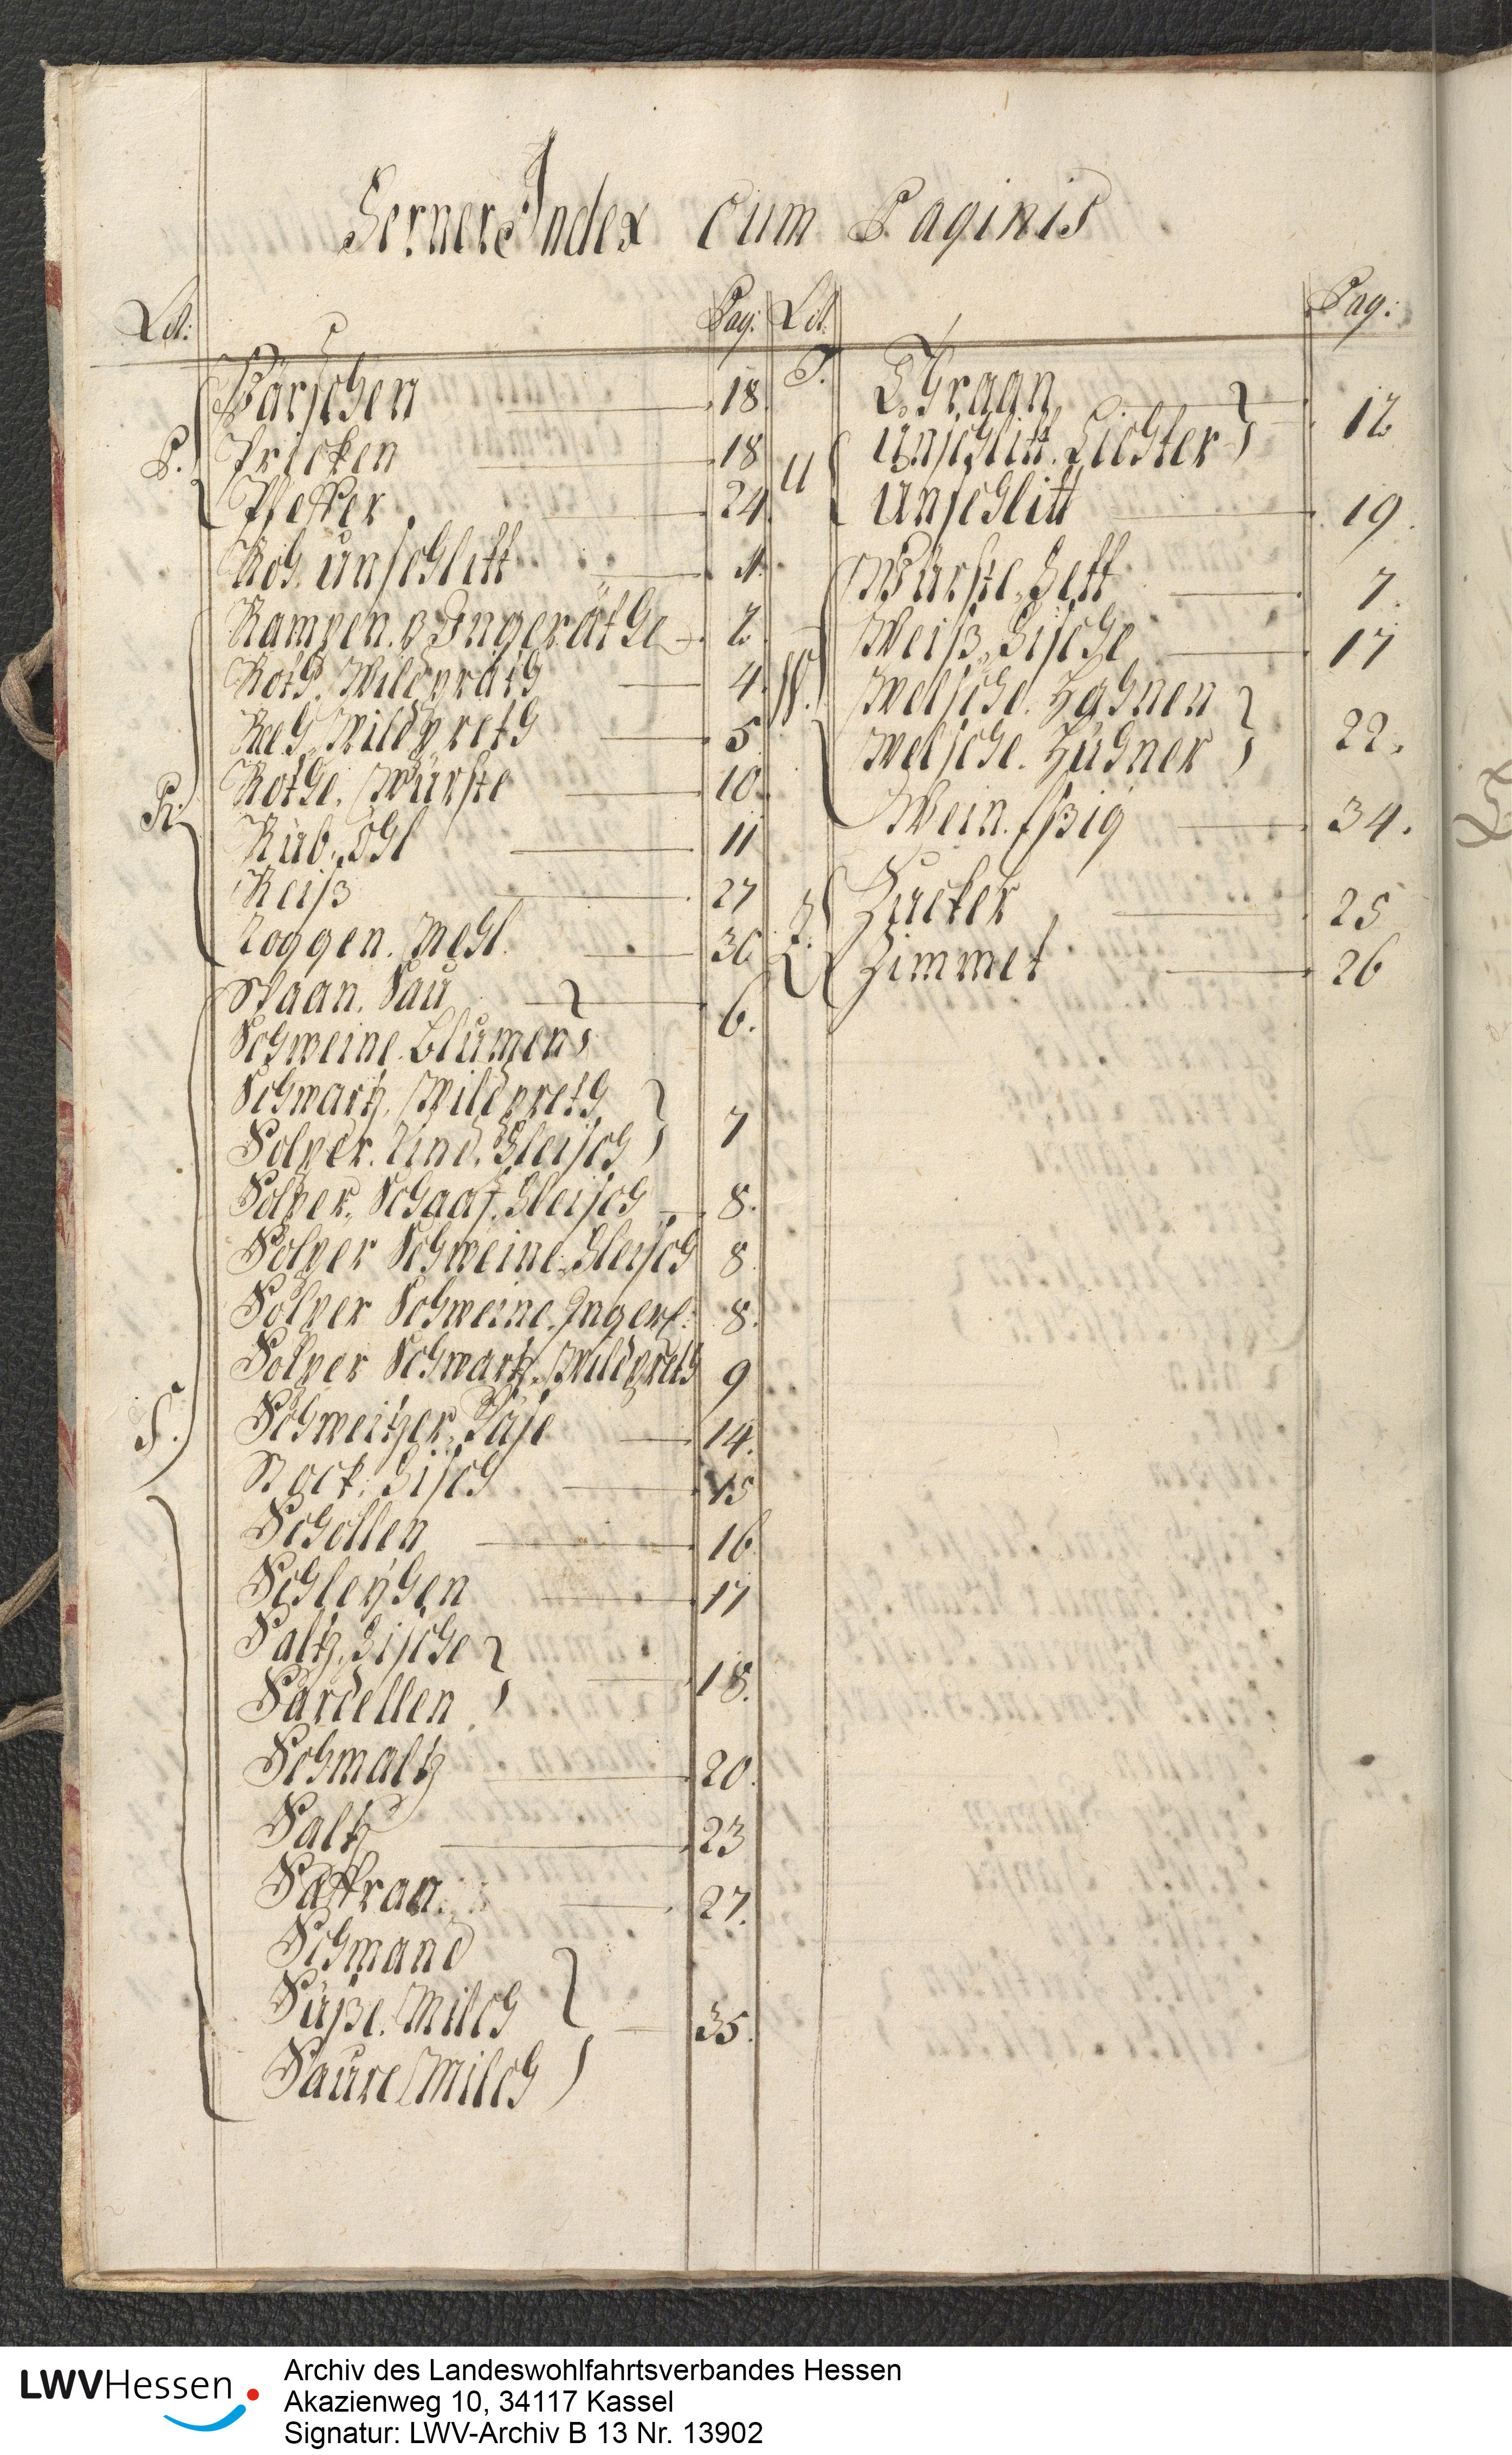 Ferner Index cum Paginis
Lit: Pag: Lit. Pag:
P.
Pärschen 18.
Pricken 18
Pfeffer 24.
R.
Roh. Unschlitt 1.
Rampen. v Ingeräthe 2.
Roth. Wildpräth 4.
Reh. Wildpreth 5.
Rothe. Würste 10.
Rüb. Öhl 11
Reiß 27
Roggen. Mehl. 30.
S.
Spaan. Sau
Schweine. Blumen 6.
Schwartz. Wildpreth
Solper. Rind. Fleisch 7
Solper. Schaaf. Fleisch 8.
Solper Schweine. Fleisch 8.
Solper Schweine. Inger: 8.
Solper Schwartz. Wildpreth 9
Schweitzer. Käse 14.
Stock. Fisch 15
Schollen 16.
Schleyhen 17
Saltz. Fische
Sardellen 18.
Schmaltz 20.
Saltz 23
Saffran 27.
Schmand
Süße. Milch
Saure Milch 35.
T.
Thraan
U
Unschlitt. Lichter 12
Unschlitt 19.
W.
Würste. Fett 7.
Weiß. Fische 17
Welsche. Hahnen
Welsche. Hühner 22.
Wein. Eßig 34.
Z.
Zucker 25
Zimmet 26
LWVHessen
Archiv des Landeswohlfahrtsverbandes Hessen
Akazienweg 10, 34117 Kassel
Signatur: LWV-Archiv B 13 Nr. 13902